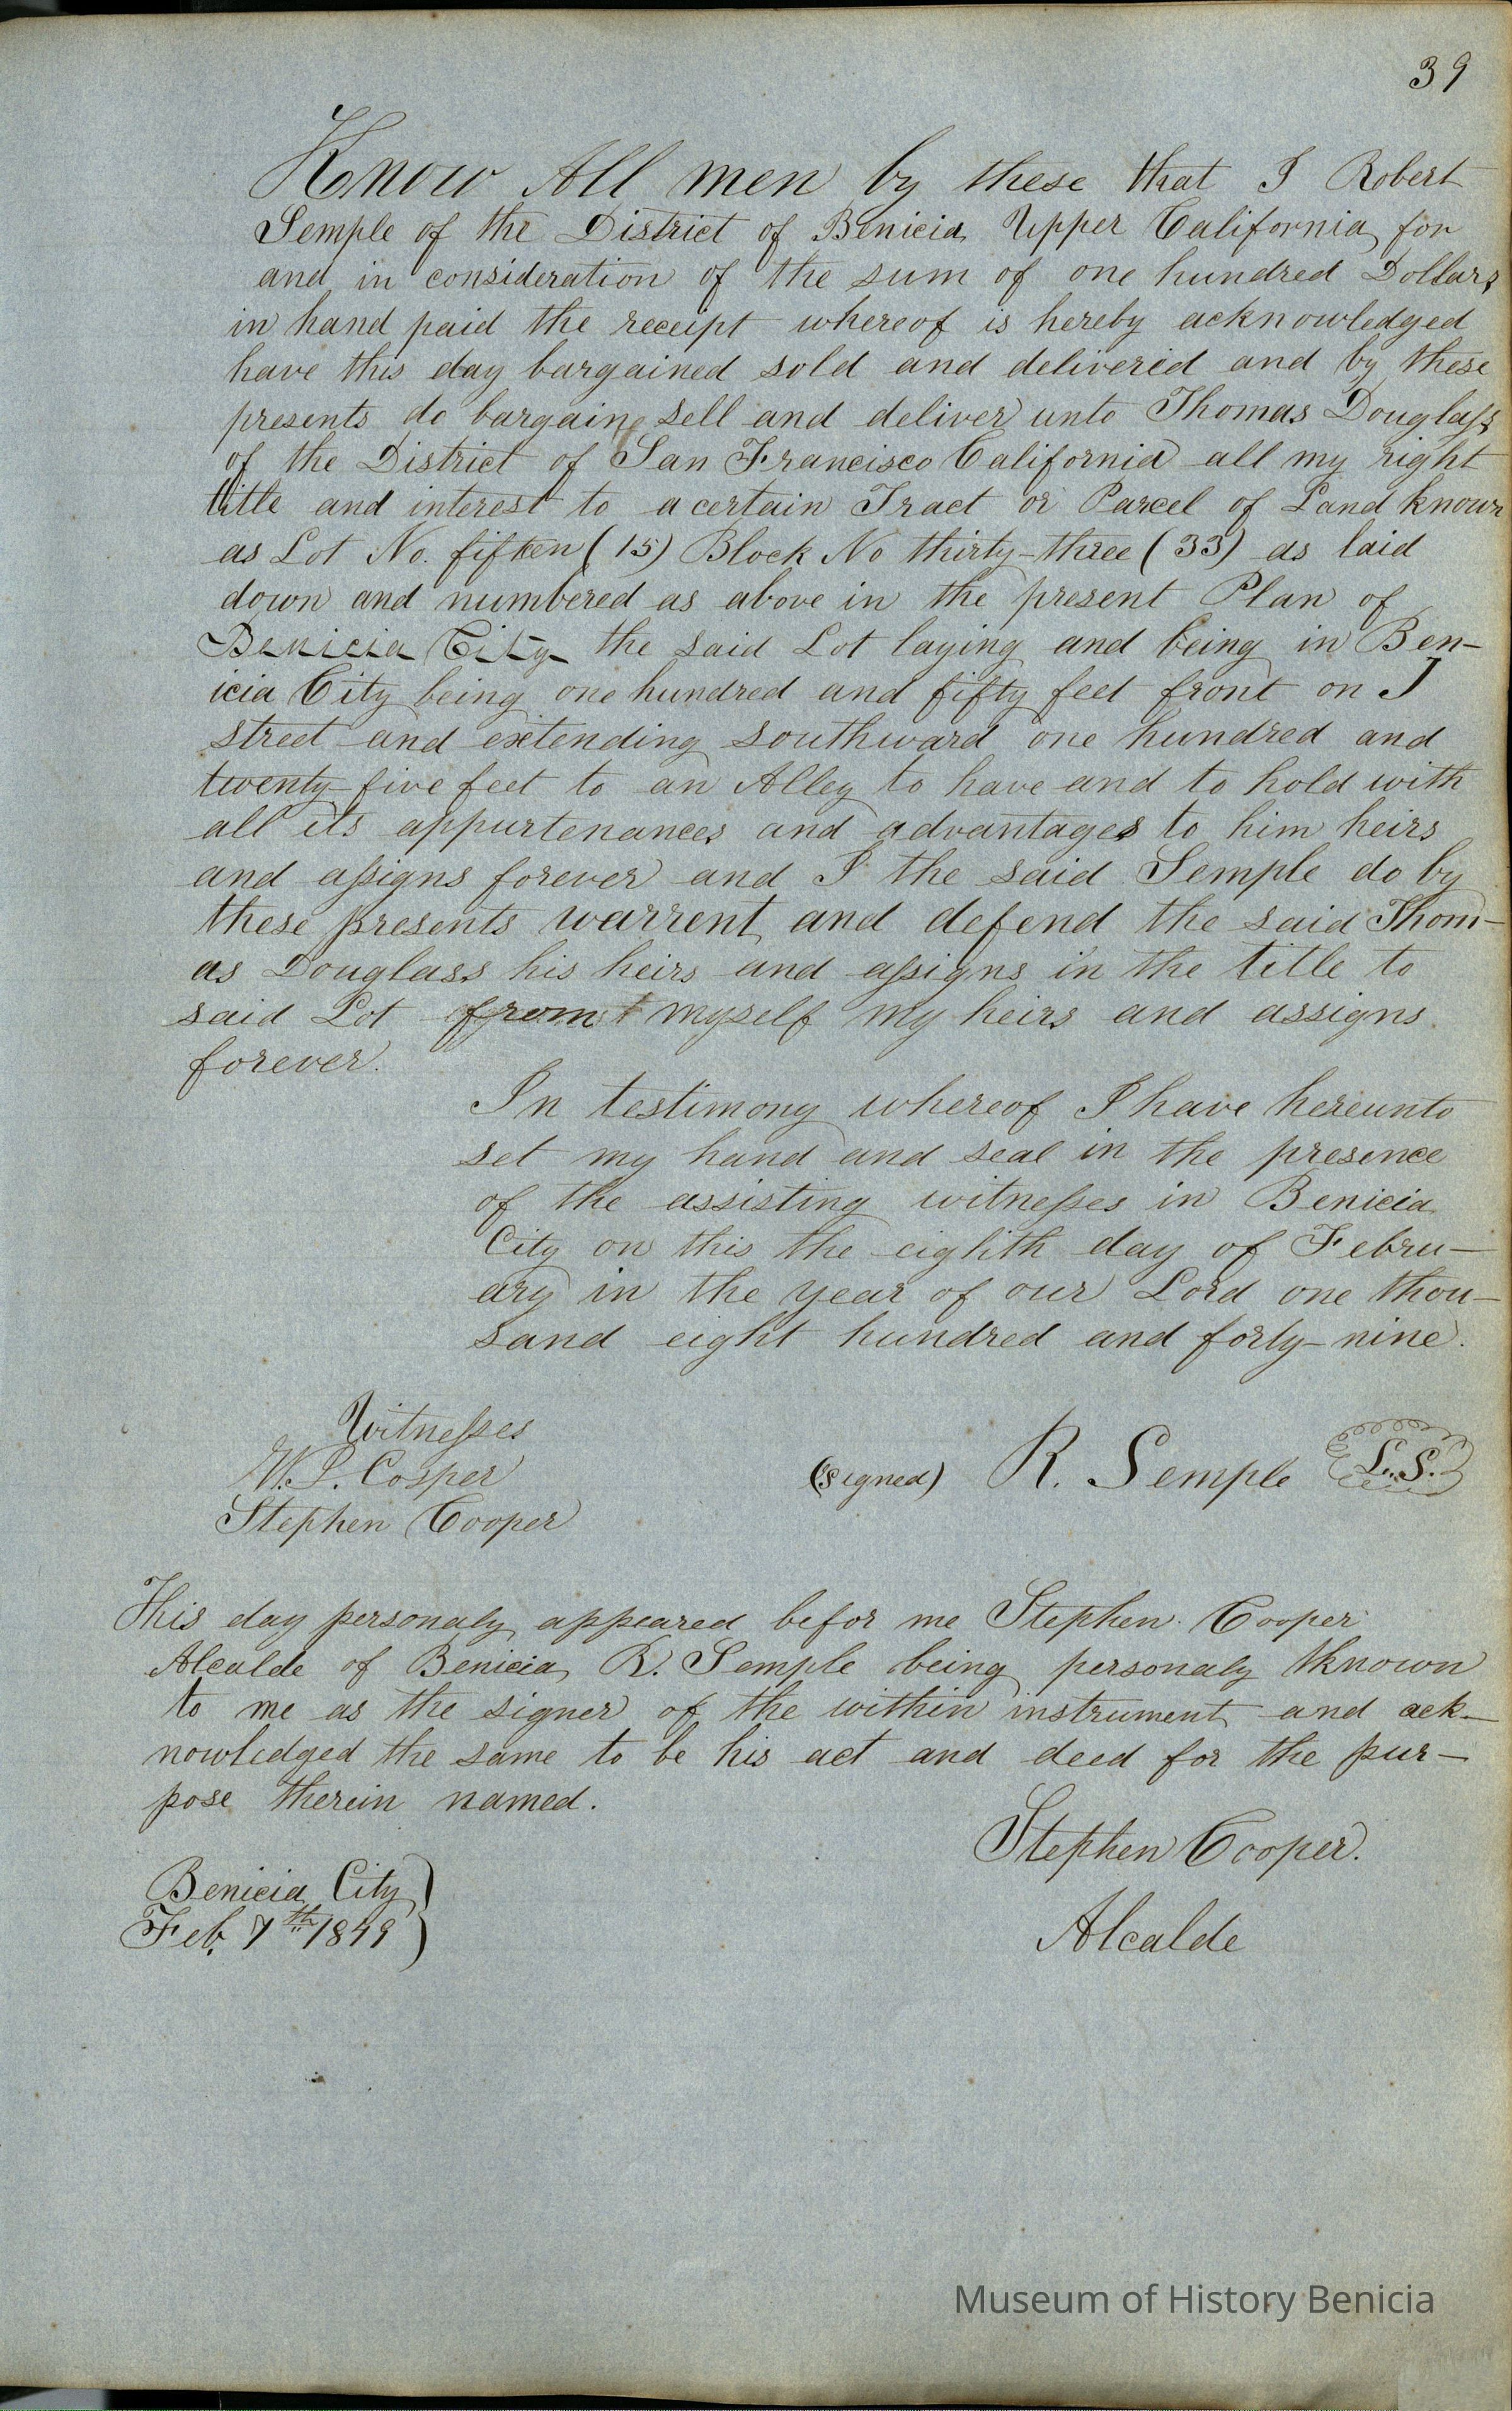 39
Know All men by these that I Robert
Semple of the District of Benicia Upper California for
and in consideration of the sum of one hundred Dollars
in hand paid the receipt whereof is hereby acknowledged
have this day bargained sold and delivered and by these
presents do bargain sell and deliver unto Thomas Douglass
of the District of San Francisco California all my right
title and interest to a certain Tract or Parcel of Land known
as Lot No. fifteen (15) Block No thirty-three (33) as laid
down and numbered as above in the present Plan of
Benicia City the said Lot laying and being in Ben-
icia City being one hundred and fifty feet front on J
street and extending southward one hundred and
twenty-five feet to an Alley to have and to hold with
all its appurtenances and advantages to him heirs
and assigns forever and I the said Semple do by
these presents warrent and defend the said Thom-
as Douglass his heirs and assigns in the title to
said Lot from myself my heirs and assigns
forever.
In testimony whereof I have hereunto
set my hand and seal in the presence
of the assisting witnesses in Benicia
City on this the eighth day of Febru-
ary in the year of our Lord one thou-
sand eight hundred and forty-nine.
Witnesses
W. L. Cosper
Stephen Cooper
(signed) R. Semple L.S.
This day personaly appeared befor me Stephen Cooper
Alcalde of Benicia R. Semple being personaly known
to me as the signer of the within instrument and ack-
nowledged the same to be his act and deed for the pur-
pose therein named.
Stephen Cooper.
Alcalde
Benicia City
Feb. 7th 1849
Museum of History Benicia